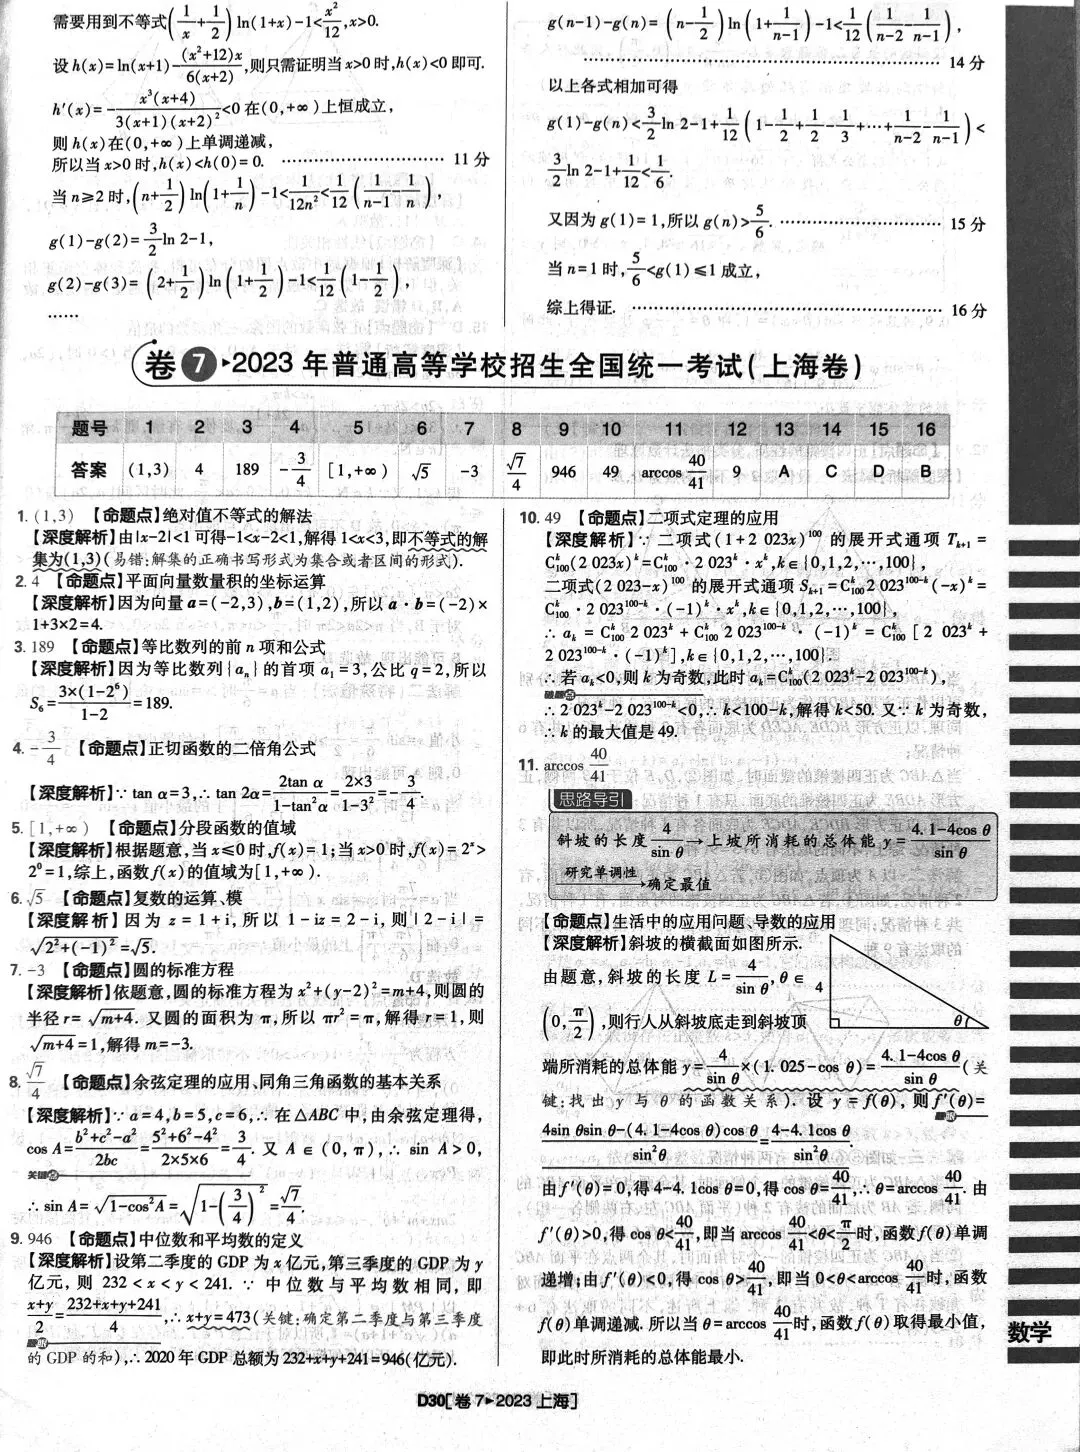 需要用到不等式(1/x+1/2)ln(1+x)-1<x²/12,x>0.
设h(x)=ln(x+1)-(x²+12)x/6(x+2),则只需证明当x>0时,h(x)<0即可.
h′(x)=-x³(x+4)/3(x+1)(x+2)²<0在(0,+∞)上恒成立,
则h(x)在(0,+∞)上单调递减,
所以当x>0时,h(x)<h(0)=0. ………………………… 11分
当n≥2时,(n+1/2)ln(1+1/n)-1<1/12n²<1/12(1/n-1-1/n),
g(1)-g(2)=3/2ln 2-1,
g(2)-g(3)=(2+1/2)ln(1+1/2)-1<1/12(1-1/2),
……
g(n-1)-g(n)=(n-1/2)ln(1+1/n-1)-1<1/12(1/n-2-1/n-1),
………………………………………………………… 14分
以上各式相加可得
g(1)-g(n)<3/2ln 2-1+1/12(1-1/2+1/2-1/3+…+1/n-2-1/n-1)<
3/2ln 2-1+1/12<1/6.
又因为g(1)=1,所以g(n)>5/6. ………………………… 15分
当n=1时,5/6<g(1)≤1成立,
综上得证. ………………………………………………… 16分
卷7▸2023年普通高等学校招生全国统一考试(上海卷)
题号 1 2 3 4 5 6 7 8 9 10 11 12 13 14 15 16
答案 (1,3) 4 189 -3/4 [1,+∞) √5 -3 √7/4 946 49 arccos 40/41 9 A C D B
1. (1,3) 【命题点】绝对值不等式的解法
【深度解析】由|x-2|<1可得-1<x-2<1,解得1<x<3,即不等式的解
集为(1,3)(易错:解集的正确书写形式为集合或者区间的形式).
2. 4 【命题点】平面向量数量积的坐标运算
【深度解析】因为向量a=(-2,3),b=(1,2),所以a·b=(-2)×
1+3×2=4.
3. 189 【命题点】等比数列的前n项和公式
【深度解析】因为等比数列{aₙ}的首项a₁=3,公比q=2,所以
S₆=3×(1-2⁶)/1-2=189.
4. -3/4 【命题点】正切函数的二倍角公式
【深度解析】∵tan α=3,∴tan 2α=2tan α/1-tan²α=2×3/1-3²=-3/4.
5. [1,+∞) 【命题点】分段函数的值域
【深度解析】根据题意,当x≤0时,f(x)=1;当x>0时,f(x)=2ˣ>
2⁰=1,综上,函数f(x)的值域为[1,+∞).
6. √5 【命题点】复数的运算、模
【深度解析】因为z=1+i,所以1-iz=2-i,则|2-i|=
√2²+(-1)²=√5.
7. -3 【命题点】圆的标准方程
【深度解析】依题意,圆的标准方程为x²+(y-2)²=m+4,则圆的
半径r=√m+4. 又圆的面积为π,所以πr²=π,解得r=1,则
√m+4=1,解得m=-3.
8. √7/4 【命题点】余弦定理的应用、同角三角函数的基本关系
【深度解析】∵a=4,b=5,c=6,∴在△ABC中,由余弦定理得,
cos A=b²+c²-a²/2bc=5²+6²-4²/2×5×6=3/4. 又A∈(0,π),∴sin A>0,
关键点
∴sin A=√1-cos²A=√1-(3/4)²=√7/4.
9. 946 【命题点】中位数和平均数的定义
【深度解析】设第二季度的GDP为x亿元,第三季度的GDP为y
亿元,则232<x<y<241. ∵中位数与平均数相同,即
x+y/2=232+x+y+241/4,∴x+y=473(关键:确定第二季度与第三季度
的GDP的和),∴2020年GDP总额为232+x+y+241=946(亿元).
10. 49 【命题点】二项式定理的应用
【深度解析】∵二项式(1+2 023x)¹⁰⁰的展开式通项Tₖ₊₁=
Cᵏ₁₀₀(2 023x)ᵏ=Cᵏ₁₀₀·2 023ᵏ·xᵏ,k∈{0,1,2,…,100},
二项式(2 023-x)¹⁰⁰的展开式通项Sₖ₊₁=Cᵏ₁₀₀2 023¹⁰⁰⁻ᵏ(-x)ᵏ=
Cᵏ₁₀₀·2 023¹⁰⁰⁻ᵏ·(-1)ᵏ·xᵏ,k∈{0,1,2,…,100},
∴aₖ=Cᵏ₁₀₀2 023ᵏ+Cᵏ₁₀₀2 023¹⁰⁰⁻ᵏ·(-1)ᵏ=Cᵏ₁₀₀[2 023ᵏ+
2 023¹⁰⁰⁻ᵏ·(-1)ᵏ],k∈{0,1,2,…,100}.
∴若aₖ<0,则k为奇数,此时aₖ=Cᵏ₁₀₀(2 023ᵏ-2 023¹⁰⁰⁻ᵏ),
破题点
∴2 023ᵏ-2 023¹⁰⁰⁻ᵏ<0,∴k<100-k,解得k<50. 又∵k为奇数,
∴k的最大值是49.
11. arccos 40/41
思路导引
斜坡的长度4/sin θ→上坡所消耗的总体能y=4.1-4cos θ/sin θ
研究单调性→确定最值
【命题点】生活中的应用问题、导数的应用
【深度解析】斜坡的横截面如图所示.
由题意,斜坡的长度L=4/sin θ,θ∈
(0,π/2),则行人从斜坡底走到斜坡顶
4
θ
端所消耗的总体能y=4/sin θ×(1.025-cos θ)=4.1-4cos θ/sin θ(关
键:找出y与θ的函数关系). 设y=f(θ),则f′(θ)=
4sin θsin θ-(4.1-4cos θ)cos θ/sin²θ=4-4.1cos θ/sin²θ.
由f′(θ)=0,得4-4.1cos θ=0,得cos θ=40/41,∴θ=arccos 40/41. 由
f′(θ)>0,得cos θ<40/41,即当arccos 40/41<θ<π/2时,函数f(θ)单调
递增;由f′(θ)<0,得cos θ>40/41,即当0<θ<arccos 40/41时,函数
f(θ)单调递减. 所以当θ=arccos 40/41时,函数f(θ)取得最小值,
即此时所消耗的总体能最小.
数学
D30[卷7▸2023上海]